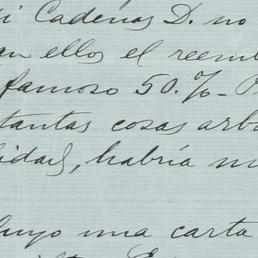 i Cadenas D. no
an ellos el reem
famoso 50.%_
tantas cosas arb
lidad, habría m
luyo una carta